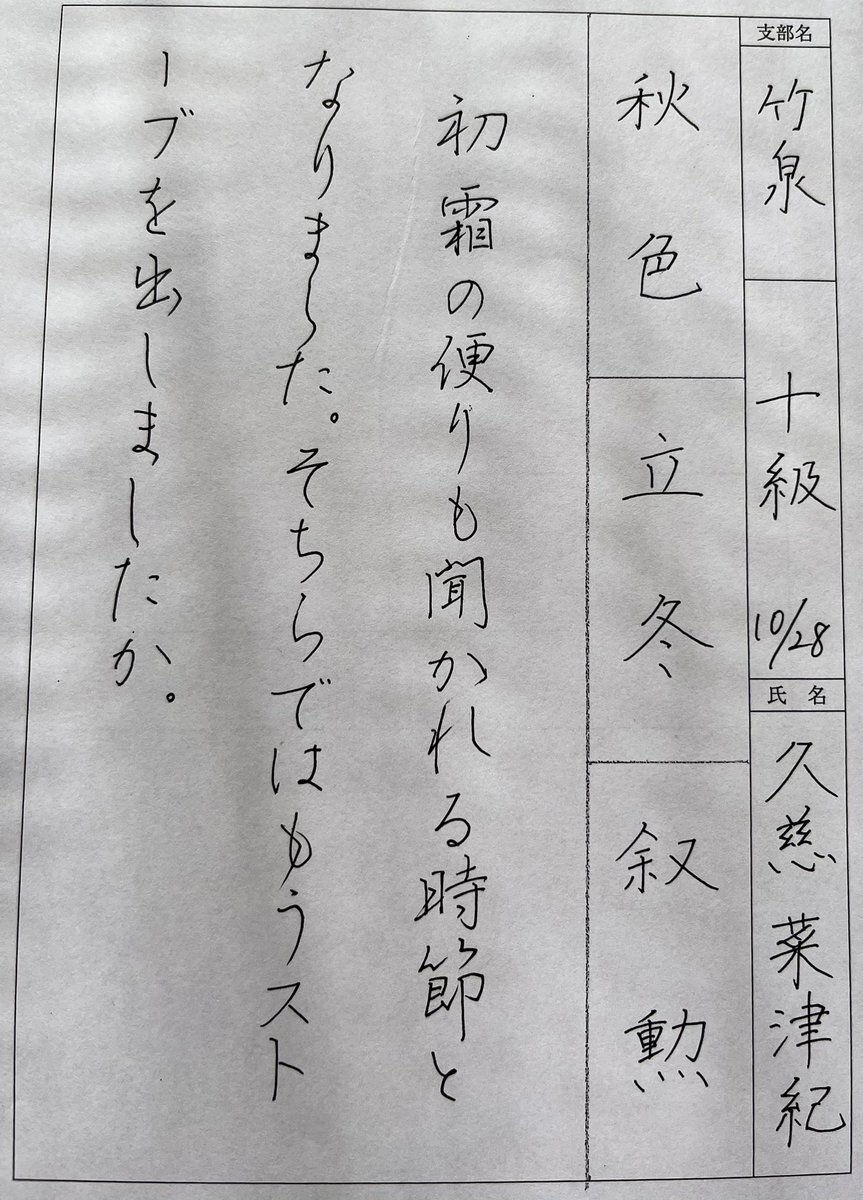 支部名
竹泉
十級
10/28
氏名
久慈 菜津紀
秋色
立冬
叙勲
初霜の便りも聞かれる時節と
なりました。そちらではもうスト
ーブを出しましたか。